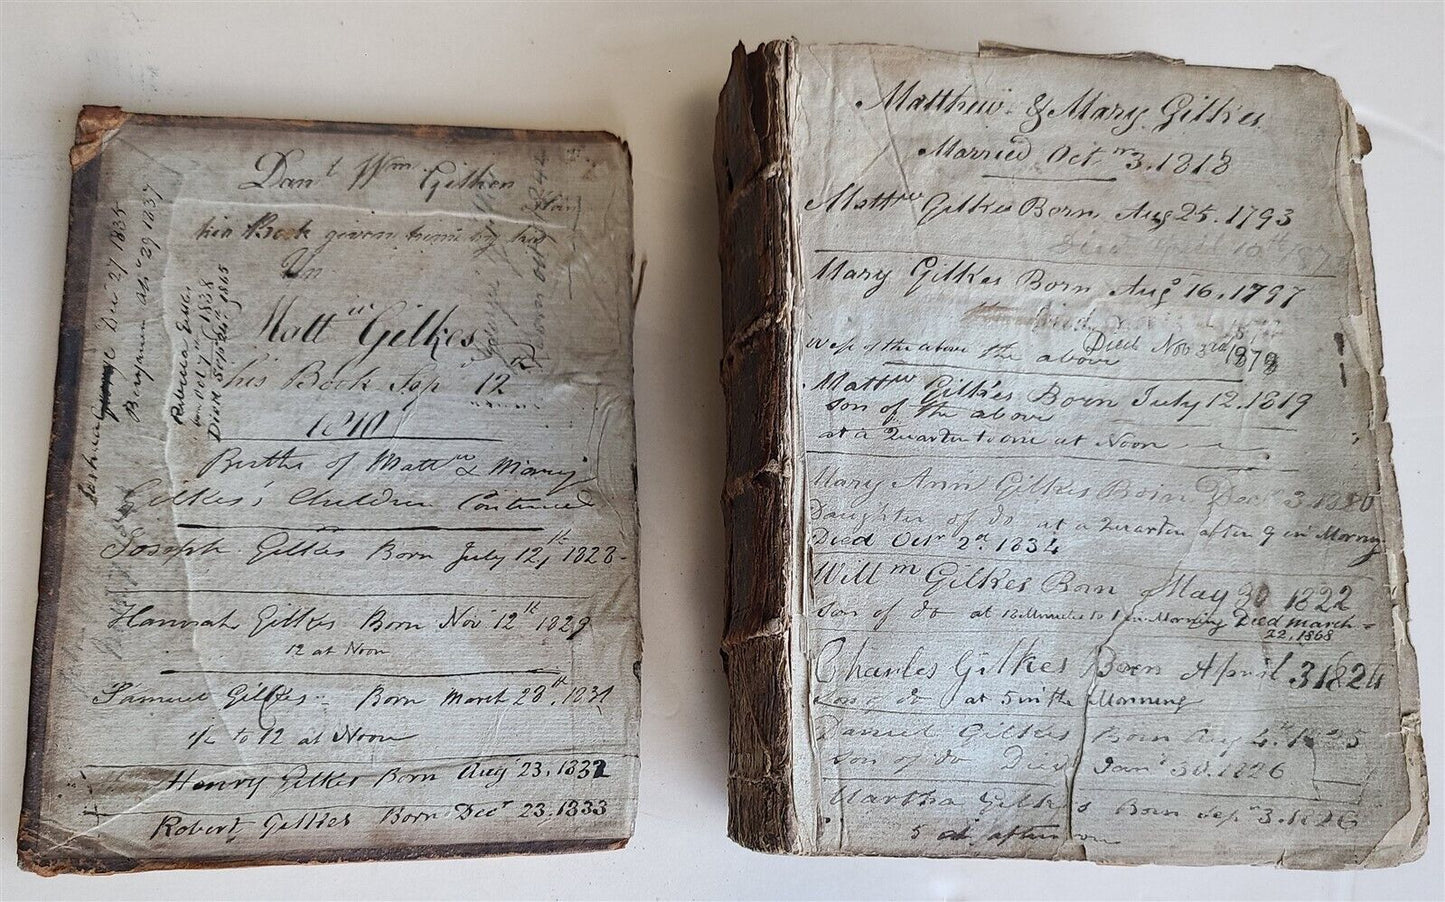 Dan.t Wm Gilkes
his Book given him by his
Matt.w Gilkes
his Book Sep 12
1810
Births of Matt.w & Mary
Gilkes's Children Continued
Joseph Gilkes Born July 12th 1828
Hannah Gilkes Born Nov 12th 1829
12 at Noon
Samuel Gilkes Born March 28th 1831
1/2 to 12 at Noon
Henry Gilkes Born Aug 23, 1832
Robert Gilkes Born Decr 23. 1833
Joshua Dec 27 1835
Benjamin 29 1837
Rebecca Gilkes
born Oct 7th 1838
Died Sep 24th 1865
Matthew & Mary Gilkes
Married Oct 3. 1818
Mattw Gilkes Born Aug 25. 1793
Died April 10th 187
Mary Gilkes Born Aug 16. 1797
Died Nov 3rd 1879
wife of the above the above
Mattw Gilkes Born July 12. 1819
son of the above
at a Quarter to one at Noon
Mary Ann Gilkes Born Dec 3. 1820
Daughter of do at a Quarter after 9 in Morning
Died Octr 2d. 1834
Willm Gilkes Born May 30 1822
Son of do at 12 Minutes to 1 in Morning Died March
22, 1868
Charles Gilkes Born April 3 1824
Son of do at 5 in the Morning
Daniel Gilkes Born Aug 4th
son of do Died Jany 30. 1826
Martha Gilkes Born Sepr 3. 1826
5 afternoon